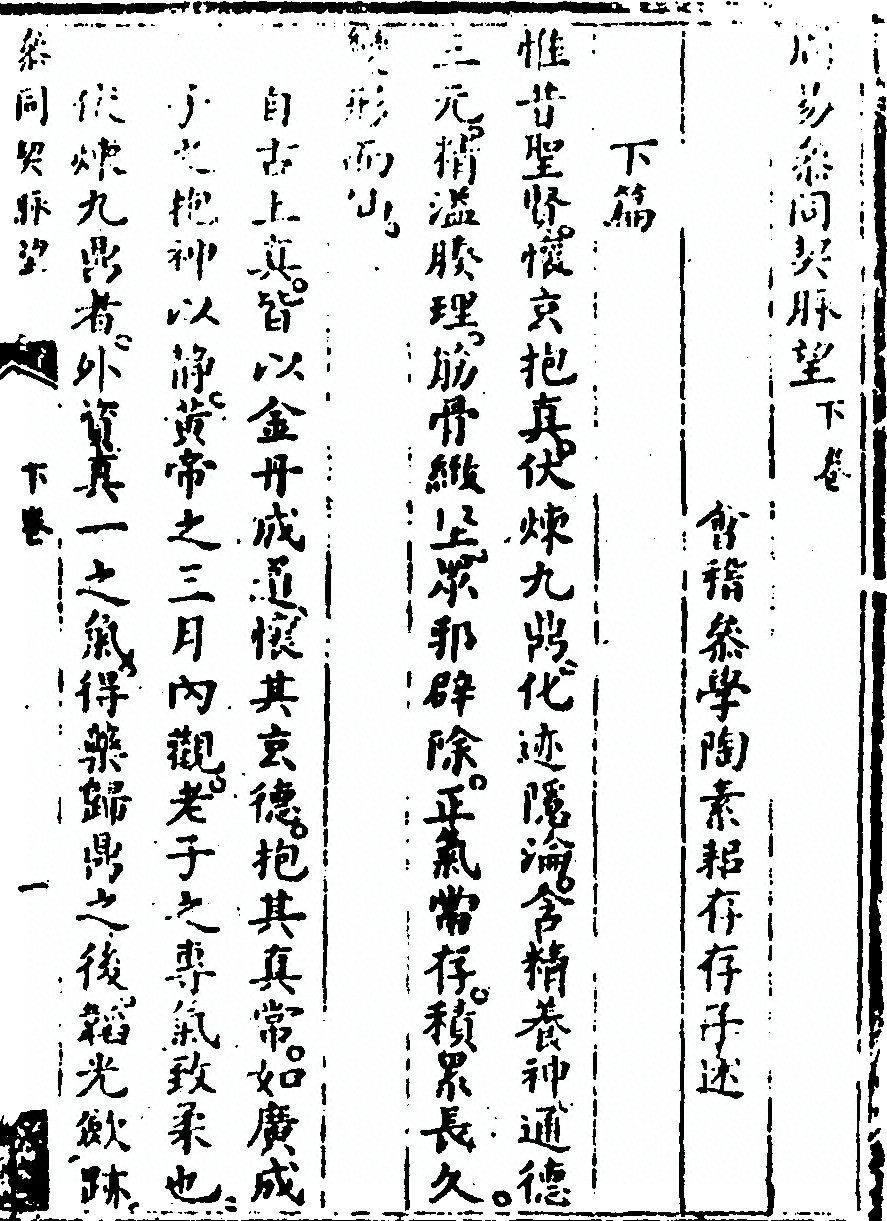 周易叅同契脉望下卷
會稽叅學陶素耜存存子述
下篇
惟昔聖賢懷玄抱真伏煉九鼎化迹隱淪含精養神通德
三元精溢腠理筋骨緻堅眾邪辟除正氣常存積累長久
變形而仙
自古上真皆以金丹成道懷其玄德抱其真常如廣成
子之抱神以静黃帝之三月內觀老子之專氣致柔也
伏煉九鼎者外資真一之氣得藥歸鼎之後韜光斂跡
叅同契脉望 下卷 一